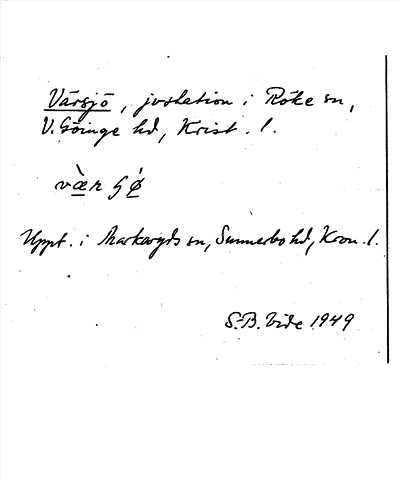 Värsjö, jvstation i Röke sn,
V. Göinge hd, Krist. l.
Uppt. i Markaryds sn, Sunnerbo hd, Kron. l.
S.B. Vide 1949